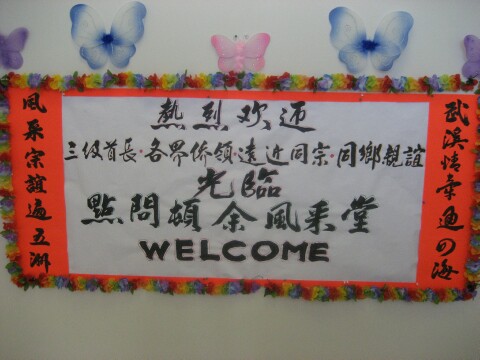 武溪情牵通四海
熱烈欢迎
三级首長·各界侨領·遠近同宗·同鄉親誼
光臨
點問頓余風采堂
WELCOME
風采宗誼遍五洲